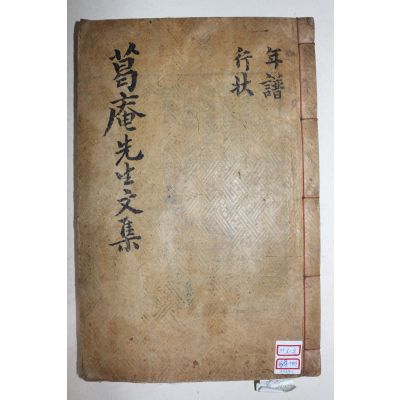 年譜
行狀
葛庵先生文集